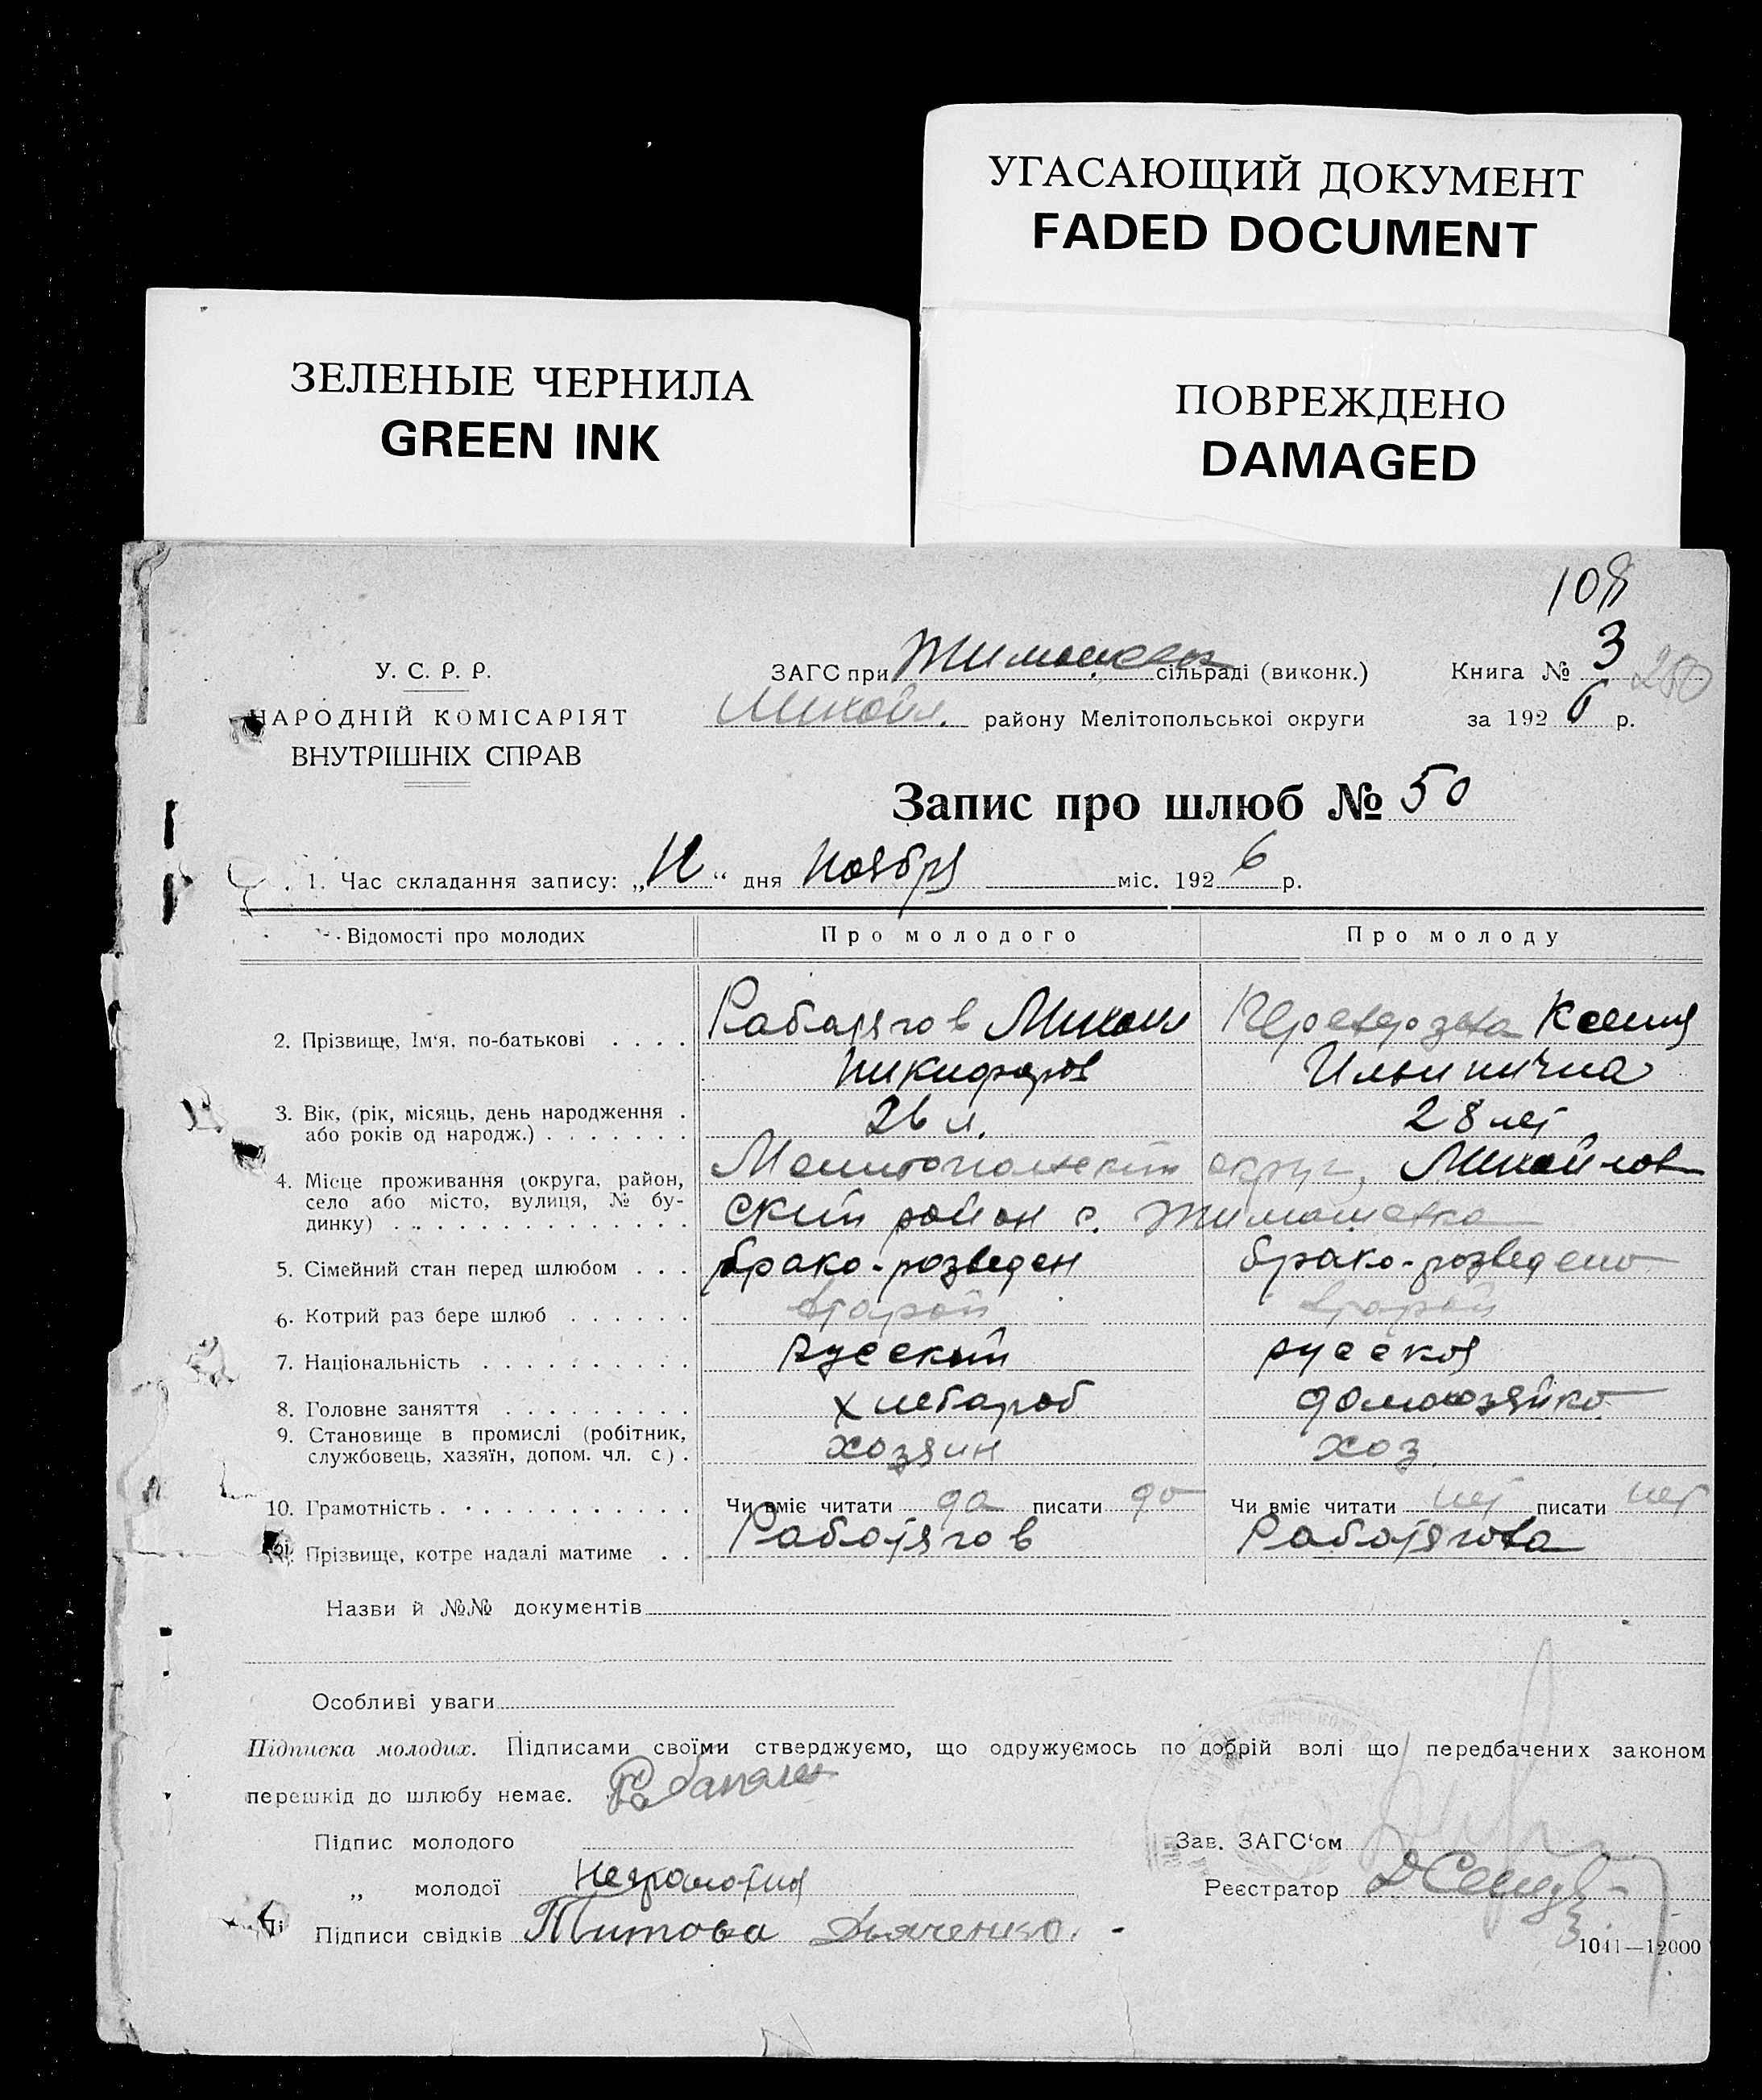 УГАСАЮЩИЙ ДОКУМЕНТ
FADED DOCUMENT
ЗЕЛЕНЫЕ ЧЕРНИЛА
GREEN INK
ПОВРЕЖДЕНО
DAMAGED
108
У. С. Р. Р.
НАРОДНІЙ КОМІСАРІЯТ
ВНУТРІШНІХ СПРАВ
ЗАГС при сільраді (виконк.) Книга № 3 250
Михайл. району Мелітопольської округи за 1926 р.
Запис про шлюб № 50
1. Час складання запису: „ “ дня Ноября міс. 1926 р.
Відомості про молодих Про молодого Про молоду
2. Прізвище, Ім‘я, по-батькові . . . . Работягов Михаил Ксения
Никифоров Ильинична
3. Вік, (рік, місяць, день народження . або років од народж.) . . . . . . . 26 л. 28 лет
4. Місце проживання (округа, район, село або місто, вулиця, № будинку) . . . . . . . . . . . . . . Мелитопольский округ, Михайлов
ский район с. Тимошевка
5. Сімейний стан перед шлюбом . . . брако-розведен брако-розведено
6. Котрий раз бере шлюб . . . . . . вторай вторай
7. Національність . . . . . . . . . . русский русская
8. Головне заняття . . . . . . . . . хлебароб домохозяйка
9. Становище в промислі (робітник, службовець, хазяїн, допом. чл. с.) . хозяин хоз.
10. Грамотність . . . . . . . . . . . Чи вміє читати да писати да Чи вміє читати нет писати нет
Прізвище, котре надалі матиме . . Работягов Работягова
Назви й №№ документів
Особливі уваги
Підписка молодих. Підписами своїми стверджуємо, що одружуємось по добрій волі що передбачених законом
перешкід до шлюбу немає.
Підпис молодого Зав. ЗАГС‘ом
„ молодої Неграмотна Реєстратор
Підписи свідків Титова Дьяченко.
1041—12000